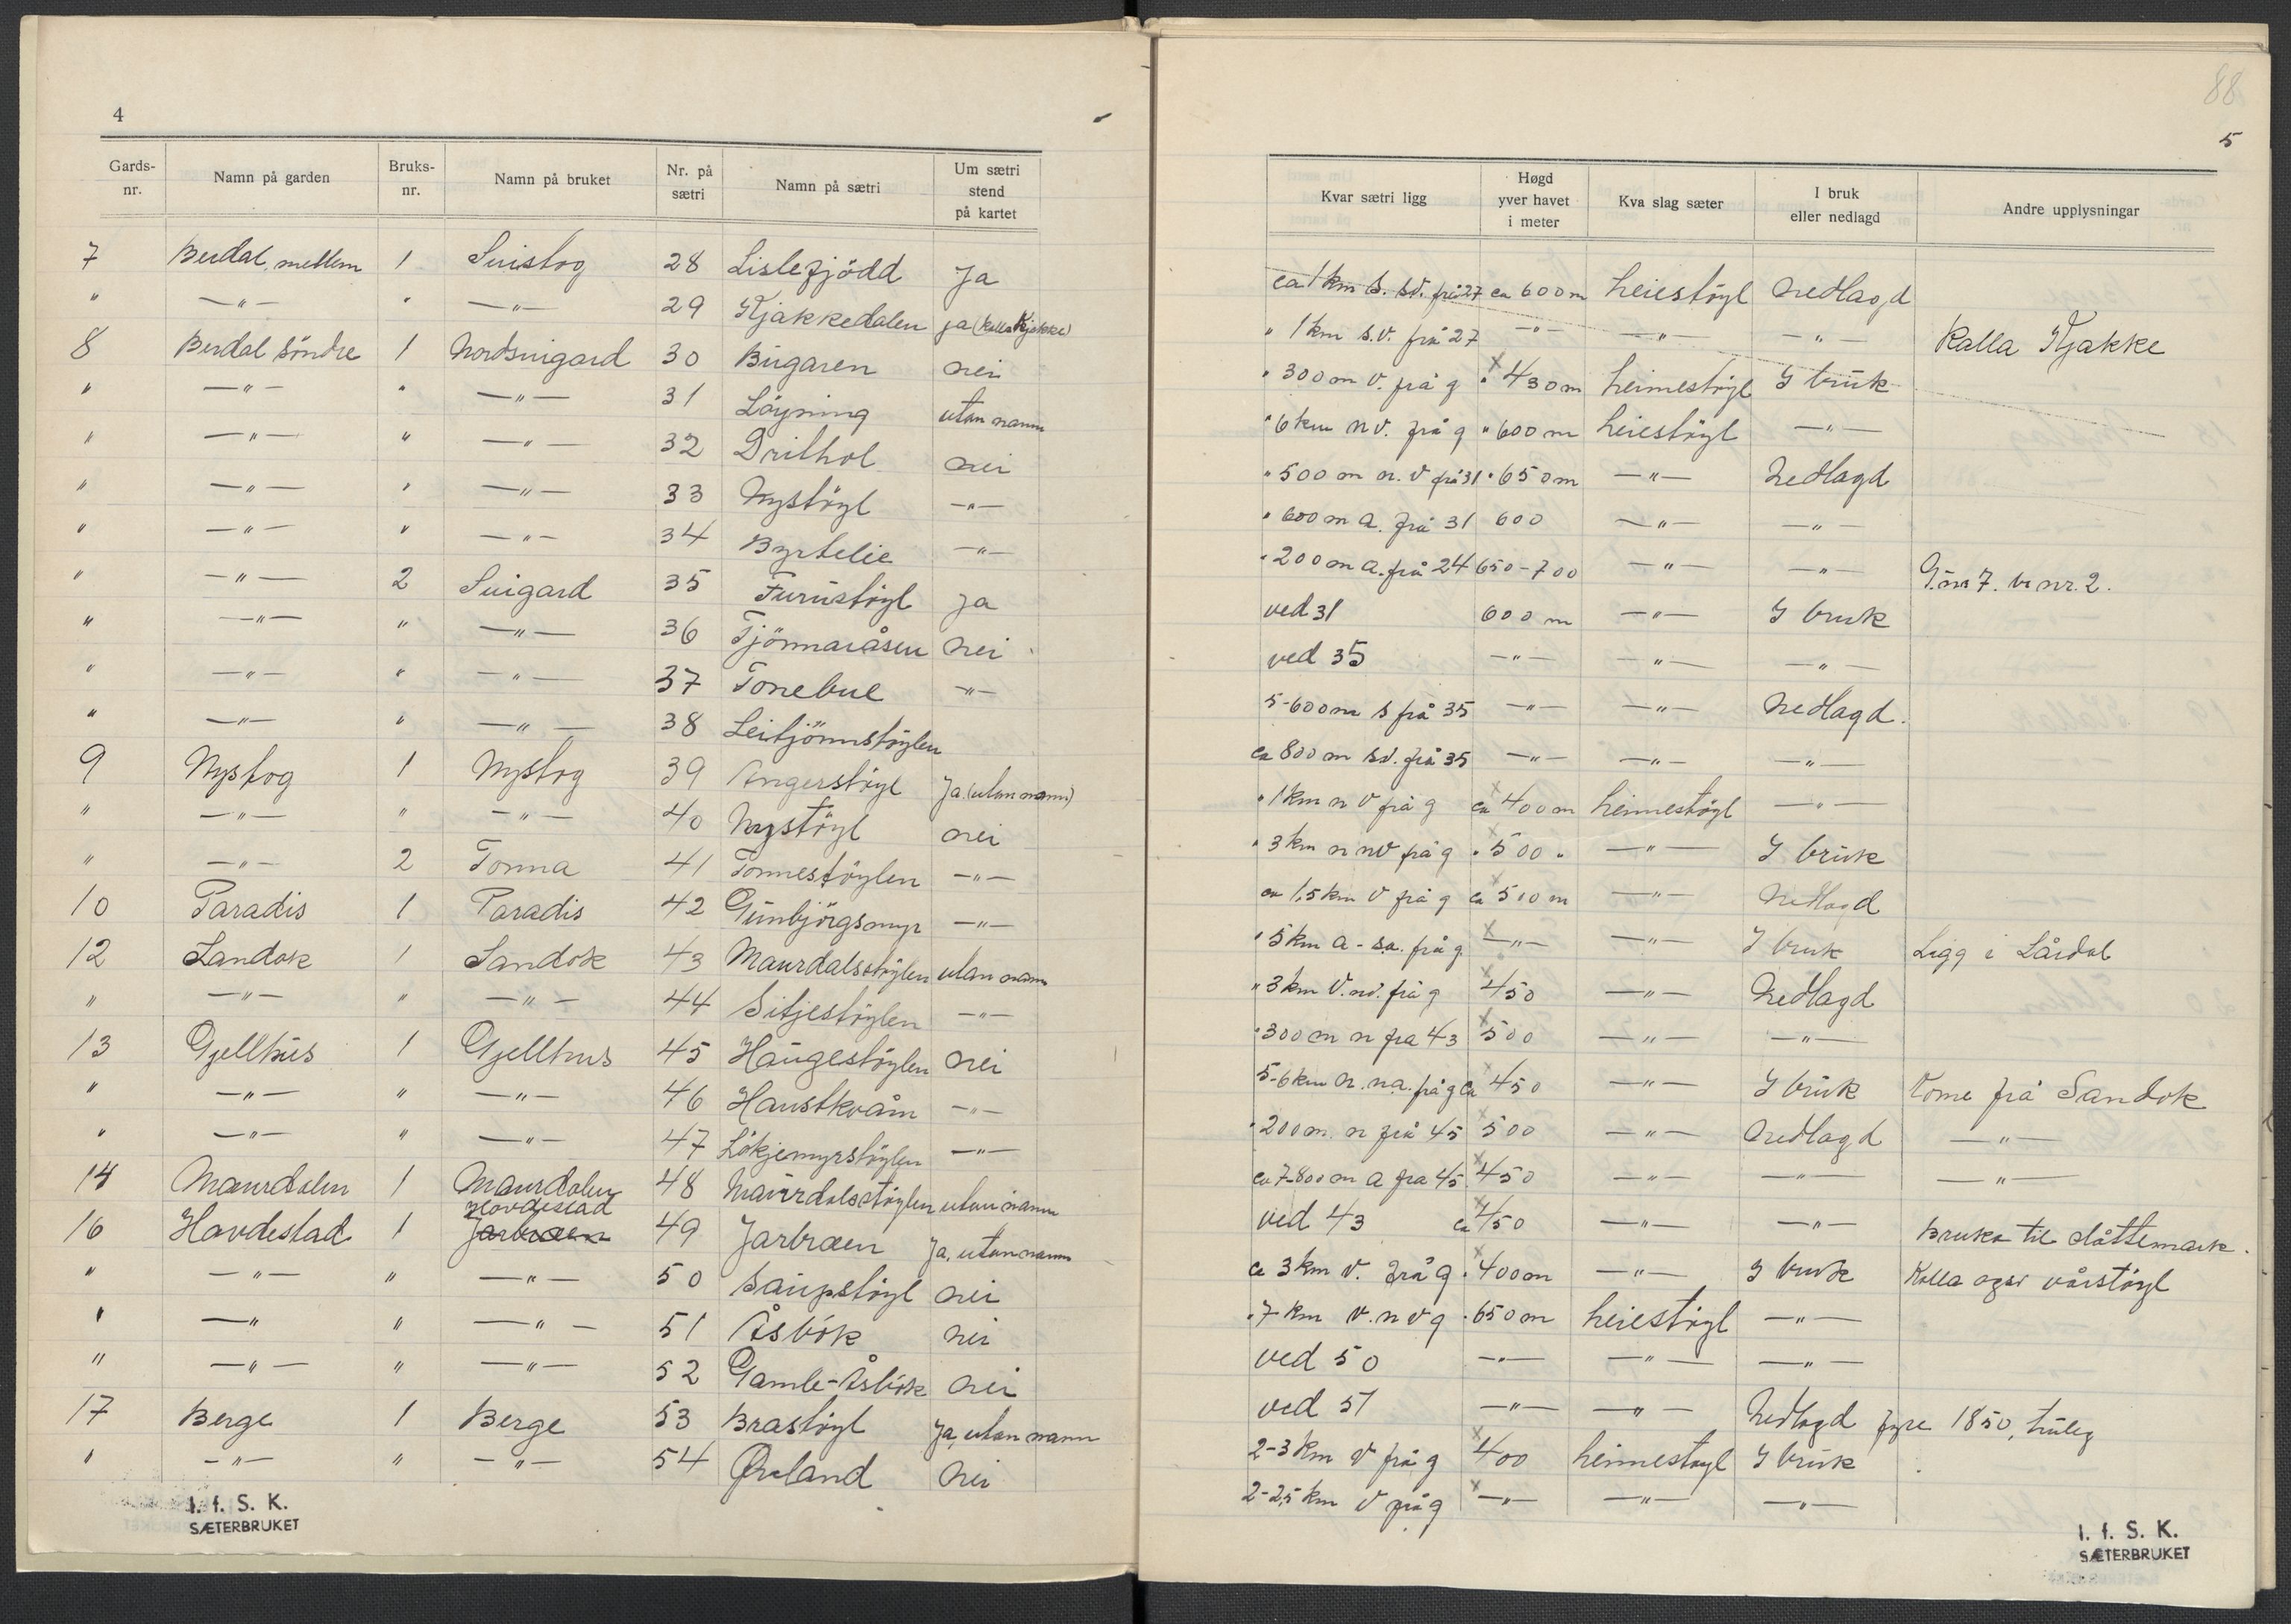 4
Gards-nr. Namn på garden Bruks-nr. Namn på bruket Nr. på sætri Namn på sætri Um sætri stend på kartet
7 Berdal, mellem 1 Suistog 28 Lislefjödd Ja
" —"— " —"— 29 Kjakkedalen ja (kalla Kjakke)
8 Berdal söndre 1 Nordsuigard 30 Bugaren nei
" —"— " —"— 31 Löyning utan namn
" —"— " —"— 32 Drithol nei
" —"— " —"— 33 Nystöyl —"—
" —"— " —"— 34 Byrtelie —"—
" —"— 2 Suigard 35 Furustöyl Ja
" —"— " —"— 36 Tjönnaråsen nei
" —"— " —"— 37 Tonebul —"—
" —"— " —"— 38 Leitjönnstöylen
9 Nystog 1 Nystog 39 Angerstöyl Ja (utan namn)
" —"— " —"— 40 Nystöyl nei
" —"— 2 Tonna 41 Tonnestöylen —"—
10 Paradis 1 Paradis 42 Gunbjörgsmyr —"—
12 Sandok 1 Sandok 43 Maurdalsstöylen utan namn
" —"— " —"— 44 Sitjestöylen —"—
13 Gjellhus 1 Gjellhus 45 Haugestöylen nei
" —"— " —"— 46 Haustkvåm —"—
" —"— " —"— 47 Lökjemyrstöylen —"—
14 Maurdalen 1 Maurdalen 48 Maurdalsstöylen utan namn
16 Hovdestad 1 Hovdestad Jarbraen 49 Jarbraen Ja, utan namn
" —"— " —"— 50 Saupstöyl nei
" —" " —"— 51 Åsbök nei
" —"— " —"— 52 Gamle-Åsbök nei
17 Berge 1 Berge 53 Brastöyl Ja, utan namn
" —"— " —"— 54 Øvland nei
I. f. S. K.
SÆTERBRUKET
88
5
Kvar sætri ligg Høgd yver havet i meter Kva slag sæter I bruk eller nedlagd Andre upplysningar
ca 1 km S. sv. frå 27 ca 600 m heiestöyl nedlagd
" 1 km s.v. frå 27 —"— —"— —"— Kalla Kjakke
" 300 m v. frå g " 430 m heimestöyl I bruk
" 6 km nv. frå g " 600 m heiestöyl —"—
" 500 m n. v frå 31 " 650 m —"— Nedlagd
" 600 m a. frå 31 600 —"— —"—
" 200 m a. frå 24 650-700 —"— —"— G.nr 7. br nr. 2.
ved 31 600 m —"— I bruk
ved 35 —"— —"— —"—
5-600 m s frå 35 —"— —"— Nedlagd.
ca 800 m sv. frå 35 —"— —"— —"—
" 1 km n v frå g ca 400 m heimestöyl —"—
" 3 km n nv frå g " 500 " —"— I bruk
ca 1,5 km v frå g ca 510 m —"— Nedlagd
" 5 km a - sa. frå g —"— —"— I bruk Ligg i Lårdal
" 3 km v. nv. frå g 450 —"— Nedlagd
" 300 m n fra 43 500 —"— —"—
5-6 km n. na. frå g ca 450 —"— I bruk Kome frå Sandok
" 200 m. n frå 45 500 —"— Nedlagd —"—
ca 7-800 m a fra 45 450 —"— —"— —"—
ved 43 ca 450 —"— —"— Bruka til slåttemark.
ca 3 km v. frå g " 400 m —"— I bruk Kalla ogso vårstöyl
" 7 km v. n v g " 650 m heiestöyl —"—
ved 50 —"— —"— —"—
ved 51 —"— —"— Nedlagd fyre 1850, truleg
2-3 km v frå g 400 heimestöyl I bruk
2-2,5 km v frå g —"— —"— —"—
I. f. S. K.
SÆTERBRUKET